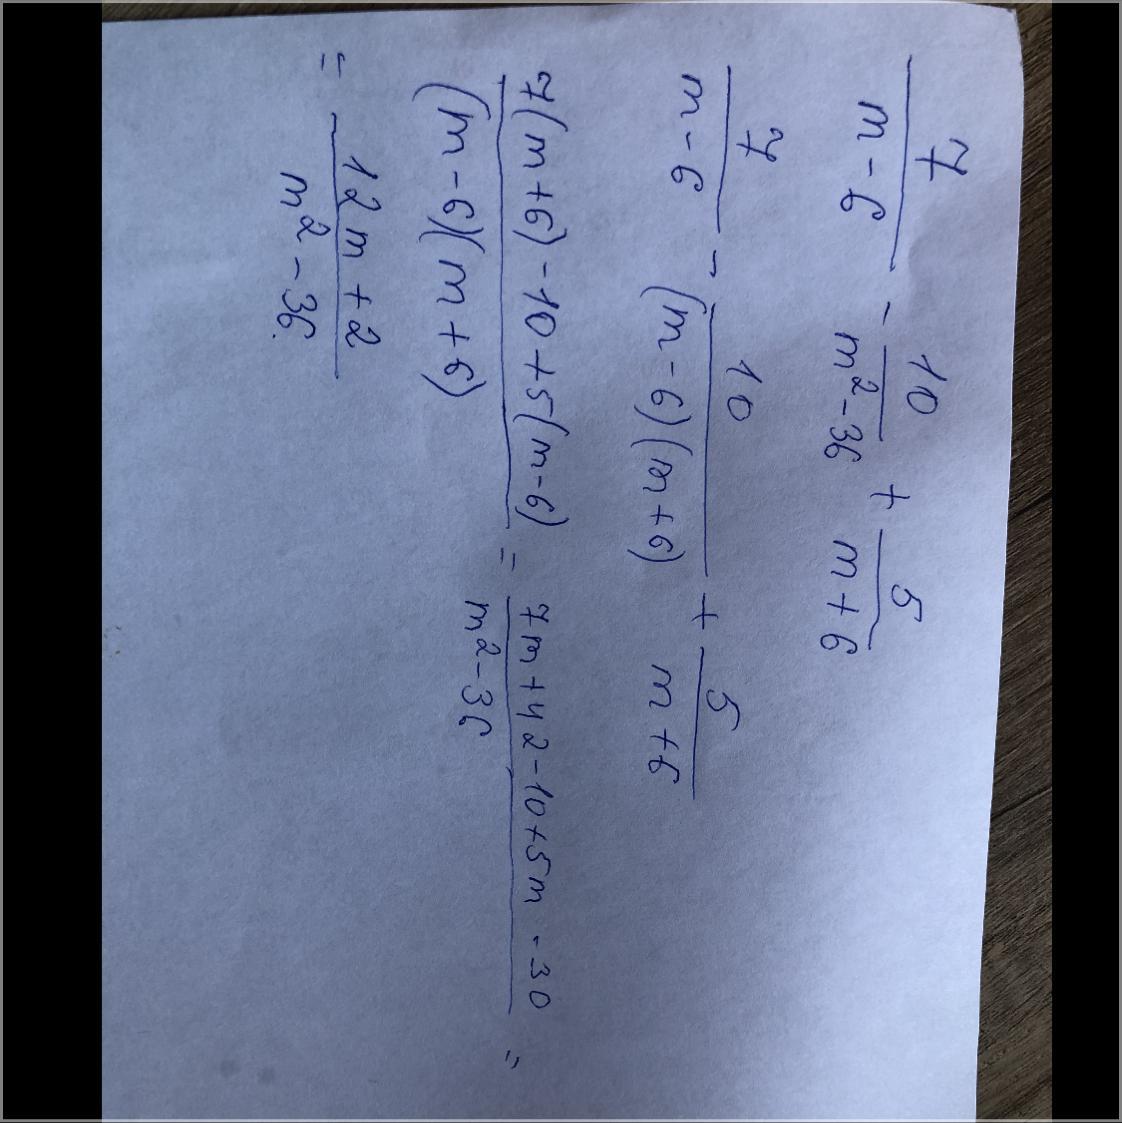 7/(m-6) - 10/(m²-36) + 5/(m+6)
7/(m-6) - 10/((m-6)(m+6)) + 5/(m+6)
(7(m+6)-10+5(m-6))/((m-6)(m+6)) = (7m+42-10+5m-30)/(m²-36) =
= (12m+2)/(m²-36)